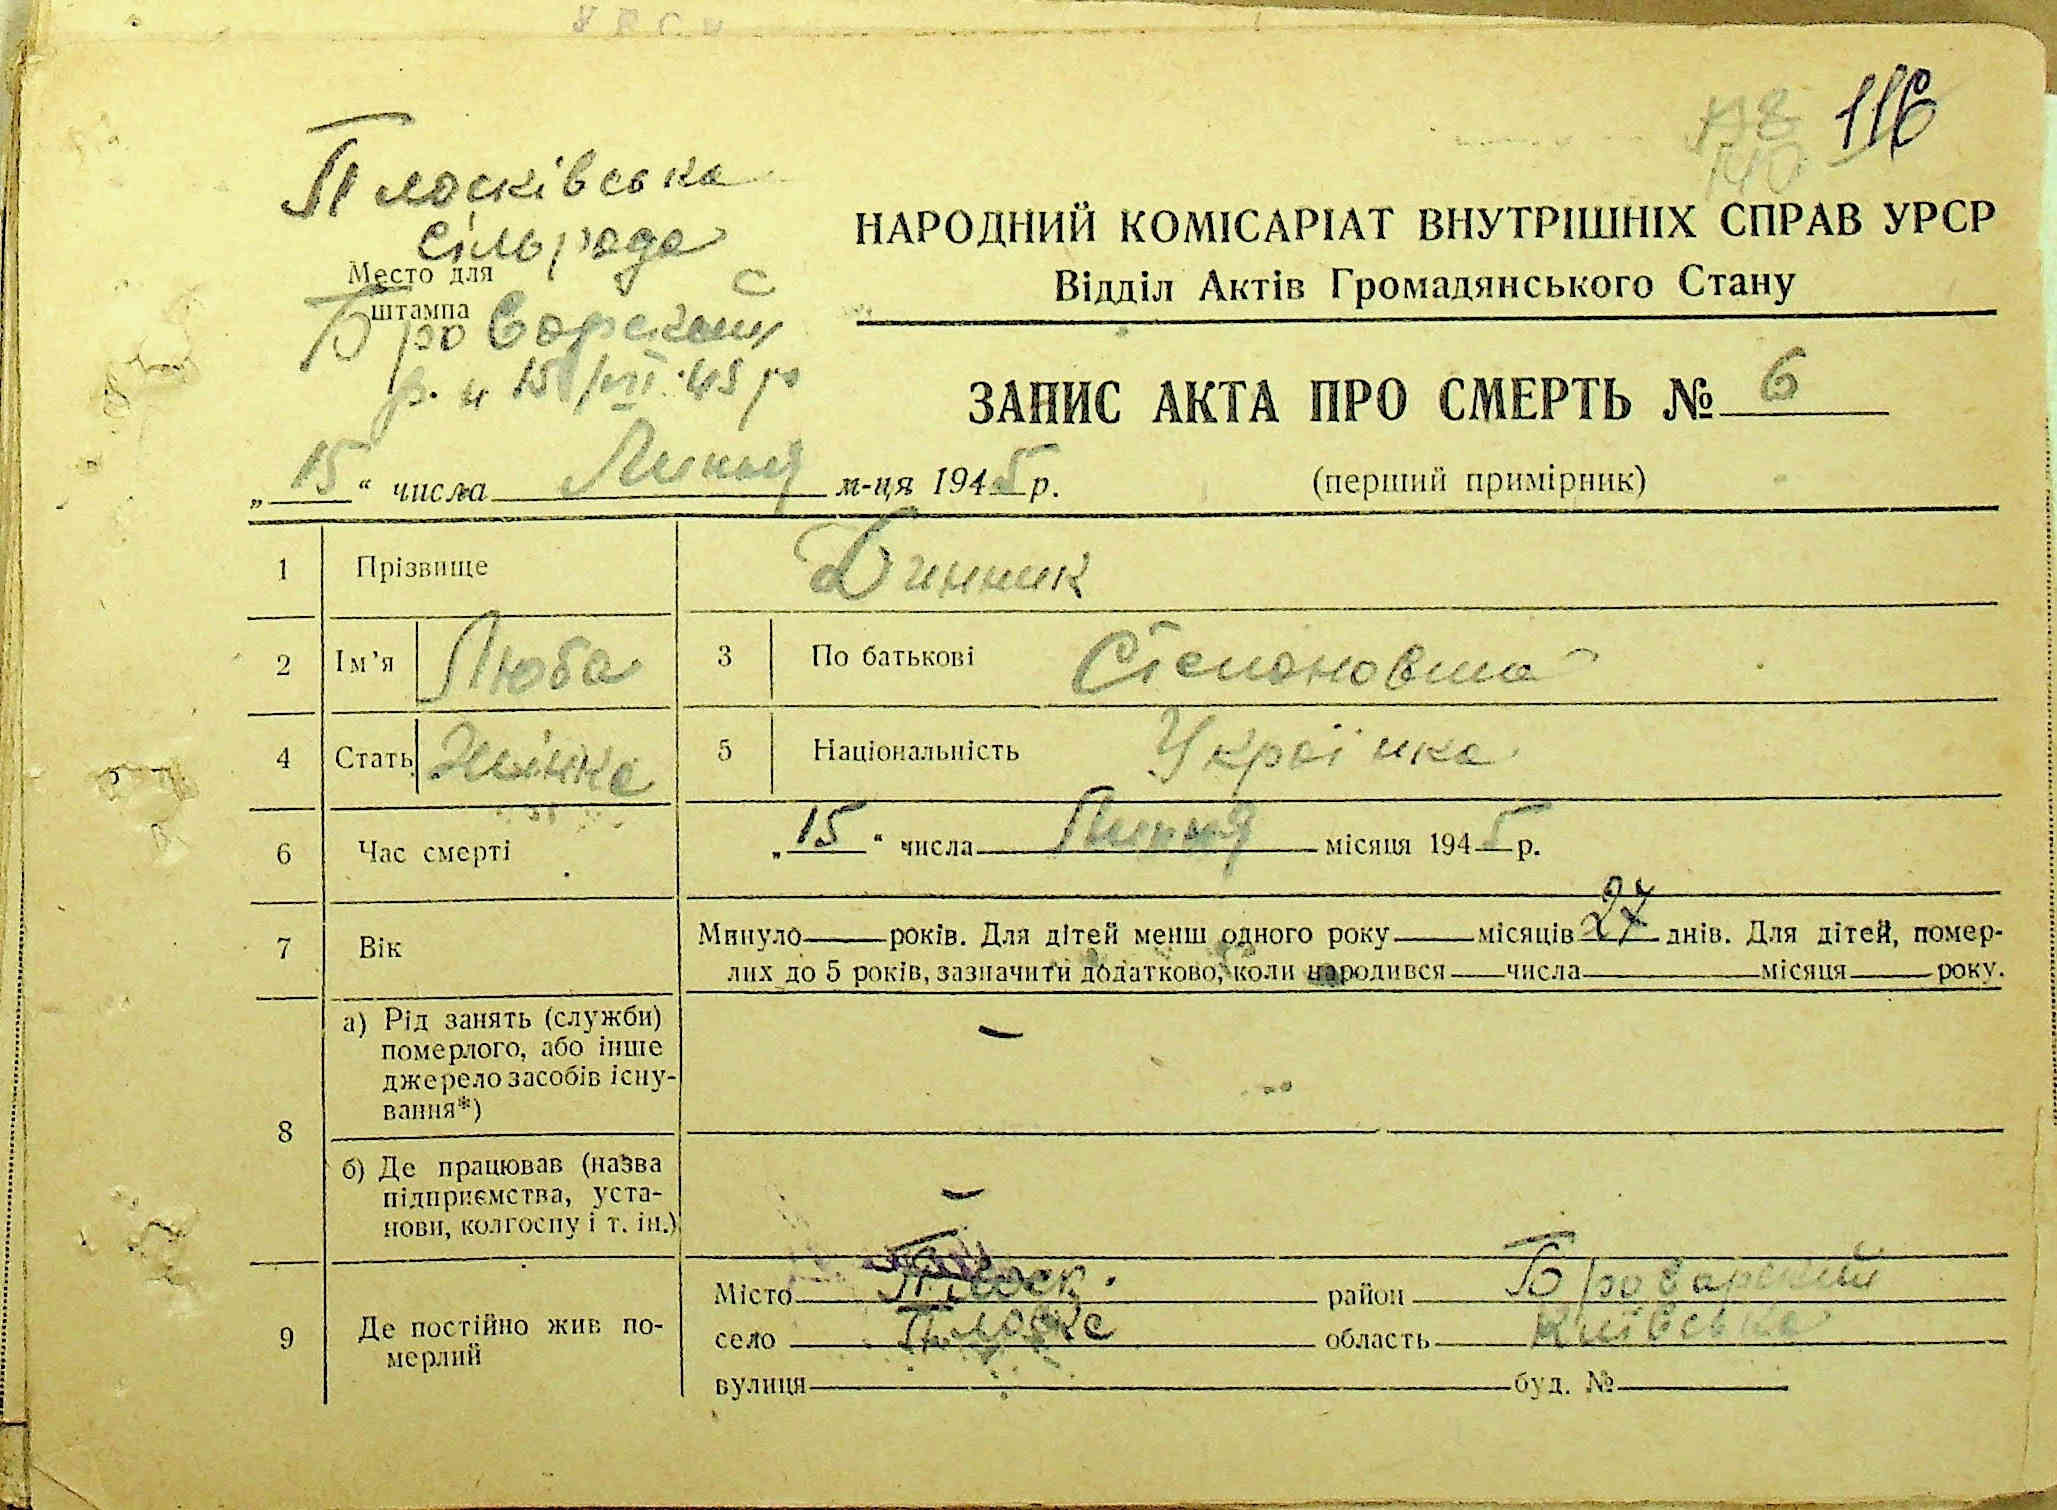 116
140
Плосківська
сільрада
Место для
штампа
Броварский
р. н 15/VII.45 р
НАРОДНИЙ КОМІСАРІАТ ВНУТРІШНІХ СПРАВ УРСР
Відділ Актів Громадянського Стану
ЗАПИС АКТА ПРО СМЕРТЬ № 6
„15“ числа Липня м-ця 1945 р.
(перший примірник)
1 Прізвище Динник
2 Ім’я Люба 3 По батькові Степановна
4 Стать Жінка 5 Національність Українка
6 Час смерті „15“ числа Липня місяця 1945 р.
7 Вік Минуло років. Для дітей менш одного року місяців 27 днів. Для дітей, помер-
лих до 5 років, зазначити додатково, коли народився числа місяця року.
8 а) Рід занять (служби)
померлого, або інше
джерело засобів існу-
вання*) –
б) Де працював (назва
підприємства, уста-
нови, колгоспу і т. ін.) –
9 Де постійно жив по-
мерлий
Місто Плоск. район Броварский
село Плоске область Київська
вулиця буд. №